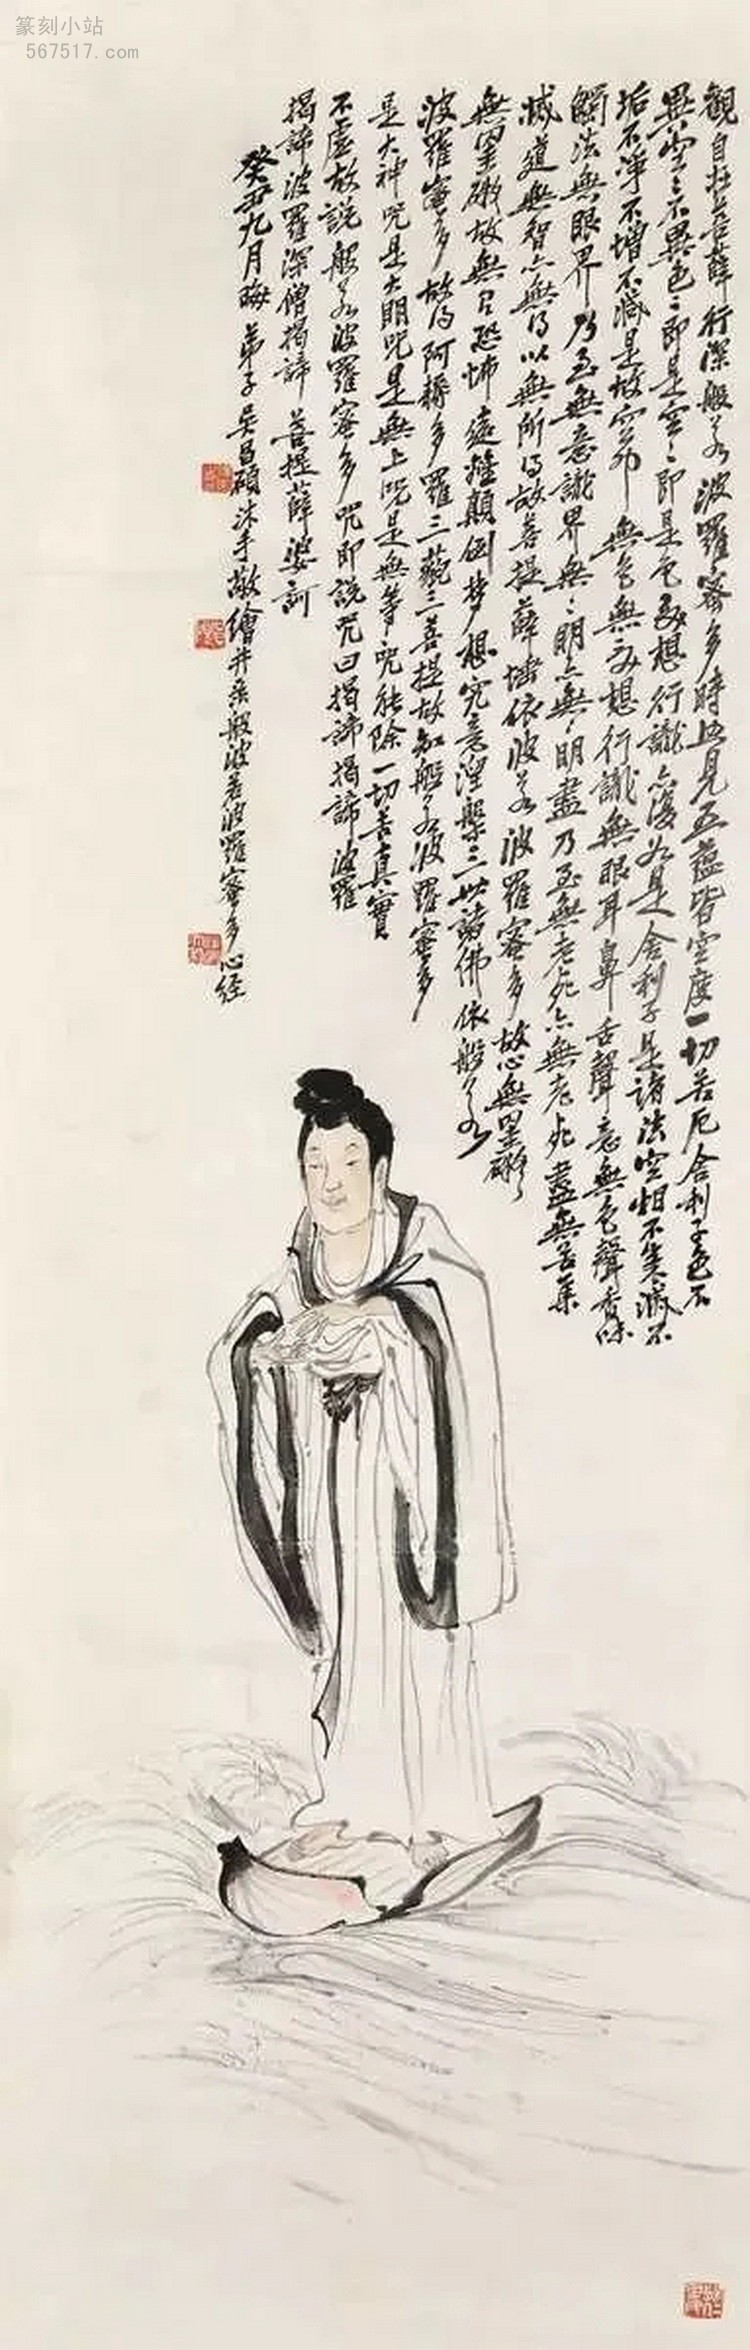 篆刻小站
567517.com
觀自在菩薩行深般若波羅蜜多時照見五蘊皆空度一切苦厄舍利子色不
異空空不異色色即是空空即是色受想行識亦復如是舍利子是諸法空相不生不滅不
垢不淨不增不減是故空中無色無受想行識無眼耳鼻舌聲意無色聲香味
觸法無眼界乃至無意識界無無明亦無無明盡乃至無老死亦無老死盡無苦集
滅道無智亦無得以無所得故菩提薩埵依波若波羅蜜多故心無罣礙
無罣礙故無有恐怖遠離顛倒夢想究竟涅槃三世諸佛依般若
波羅蜜多故得阿耨多羅三藐三菩提故知般若波羅蜜多
是大神咒是大明咒是無上咒是無等等咒能除一切苦真實
不虛故說般若波羅蜜多咒即說咒曰揭諦揭諦波羅
揭諦波羅深僧揭諦菩提薩婆訶
癸丑九月晦弟子吳昌碩沐手敬繪并录般波若波羅蜜多心经